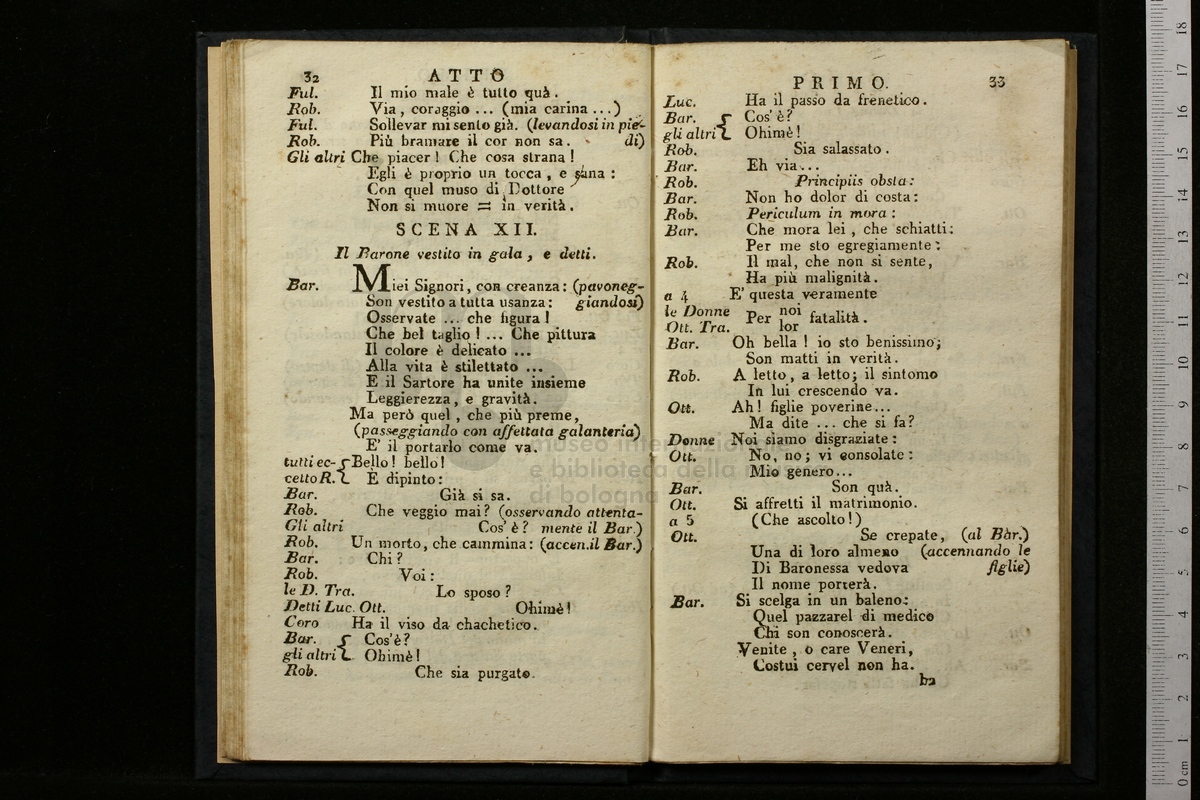 32 ATTO
Ful. Il mio male è tutto quà.
Rob. Via, coraggio ... (mia carina ...)
Ful. Sollevar mi sento già. (levandosi in pie-
Rob. Più bramare il cor non sa. di)
Gli altri Che piacer! Che cosa strana!
Egli è proprio un tocca, e sana:
Con quel muso di Dottore
Non si muore = in verità.
SCENA XII.
Il Barone vestito in gala, e detti.
Bar. Miei Signori, con creanza: (pavoneg-
Son vestito a tutta usanza: giandosi)
Osservate ... che figura!
Che bel taglio! ... Che pittura
Il colore è delicato ...
Alla vita è stilettato ...
E il Sartore ha unite insieme
Leggierezza, e gravità.
Ma però quel, che più preme,
(passeggiando con affettata galanteria)
E' il portarlo come va.
tutti ec- { Bello! bello!
cetto R. { È dipinto:
Bar. Già si sa.
Rob. Che veggio mai? (osservando attenta-
Gli altri Cos'è? mente il Bar.)
Rob. Un morto, che cammina: (accen. il Bar.)
Bar. Chi?
Rob. Voi:
le D. Tra. Lo sposo?
Detti Luc. Ott. Ohimè!
Coro Ha il viso da chachetico.
Bar. { Cos'è?
gli altri { Ohimè!
Rob. Che sia purgato.
PRIMO. 33
Luc. Ha il passo da frenetico.
Bar. { Cos'è?
gli altri { Ohimè!
Rob. Sia salassato.
Bar. Eh via...
Rob. Principiis obsta:
Bar. Non ho dolor di costa:
Rob. Periculum in mora:
Bar. Che mora lei, che schiatti:
Per me sto egregiamente:
Rob. Il mal, che non si sente,
Ha più malignità.
a 4 E' questa veramente
le Donne Per noi fatalità.
Ott. Tra. lor
Bar. Oh bella! io sto benissimo;
Son matti in verità.
Rob. A letto, a letto; il sintomo
In lui crescendo va.
Ott. Ah! figlie poverine...
Ma dite ... che si fa?
Donne Noi siamo disgraziate:
Ott. No, no; vi consolate:
Mio genero...
Bar. Son quà.
Ott. Si affretti il matrimonio.
a 5 (Che ascolto!)
Ott. Se crepate, (al Bar.)
Una di loro almeno (accennando le
Di Baronessa vedova figlie)
Il nome porterà.
Bar. Si scelga in un baleno:
Quel pazzarel di medico
Chi son conoscerà.
Venite, o care Veneri,
Costui cervel non ha.
b2
museo internazionale
e biblioteca della musica
di bologna
0 cm 1 2 3 4 5 6 7 8 9 10 11 12 13 14 15 16 17 18